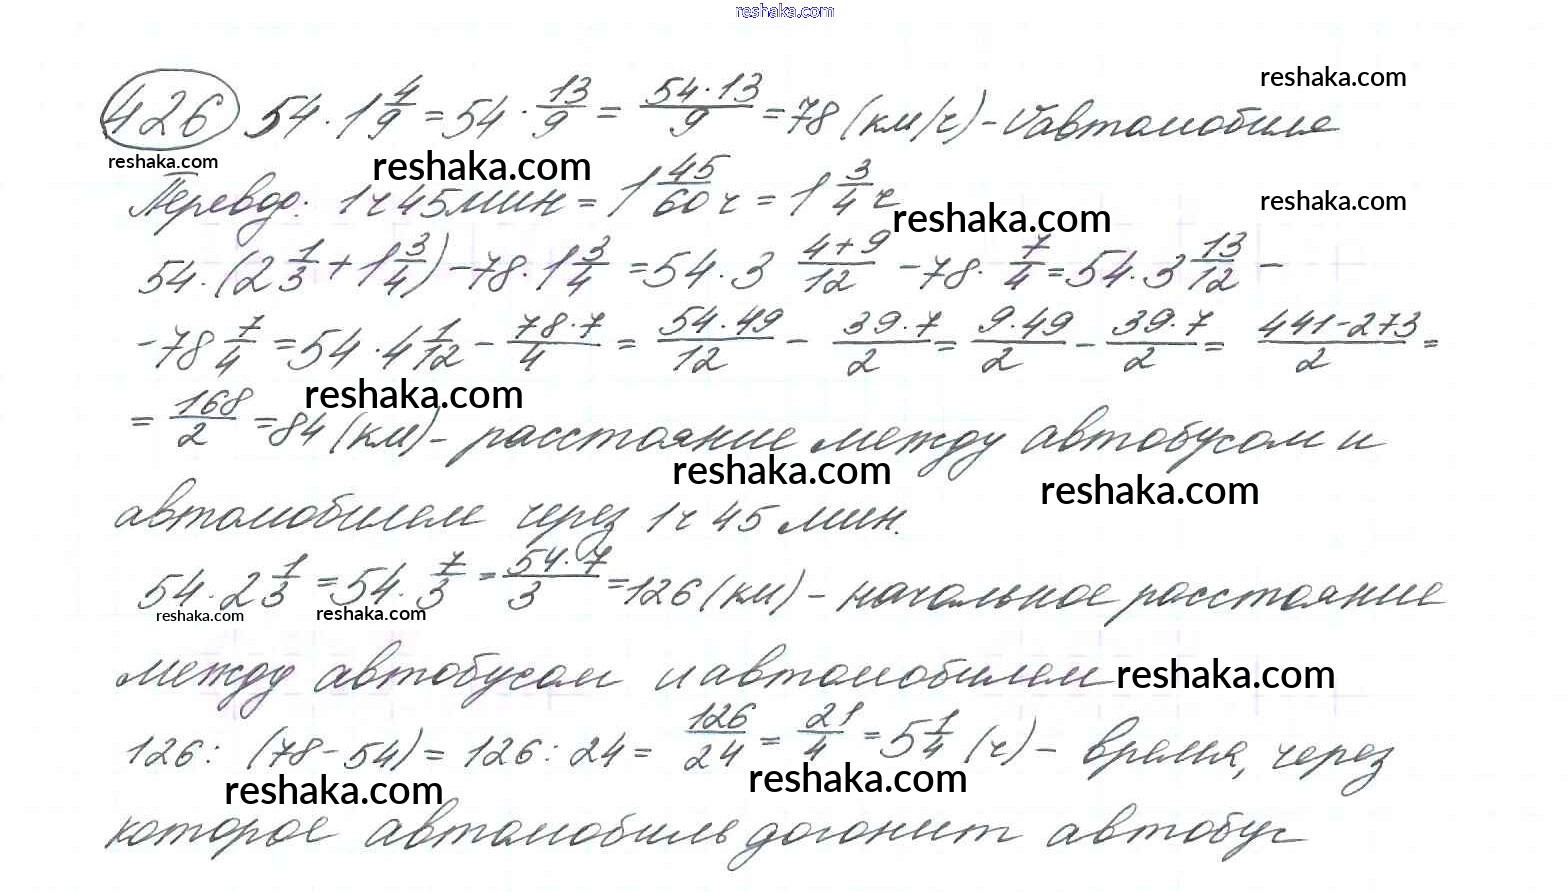 reshaka.com
426 54 · 1 4/9 = 54 · 13/9 = 54·13/9 = 78 (км/ч) - Vавтомобиля
reshaka.com
reshaka.com
reshaka.com
Перевод: 1ч 45мин = 1 45/60 ч = 1 3/4 ч
reshaka.com
reshaka.com
54 · (2 1/3 + 1 3/4) - 78 · 1 3/4 = 54 · 3 4+9/12 - 78 · 7/4 = 54 · 3 13/12 -
- 78 7/4 = 54 · 4 1/12 - 78·7/4 = 54·49/12 - 39·7/2 = 9·49/2 - 39·7/2 = 441-273/2 =
reshaka.com
= 168/2 = 84 (км) - расстояние между автобусом и
reshaka.com
reshaka.com
автомобилем через 1ч 45 мин.
54 · 2 1/3 = 54 · 7/3 = 54·7/3 = 126 (км) - начальное расстояние
reshaka.com
reshaka.com
между автобусом и автомобилем
reshaka.com
126 : (78 - 54) = 126 : 24 = 126/24 = 21/4 = 5 1/4 (ч) - время, через
reshaka.com
reshaka.com
которое автомобиль догонит автобус